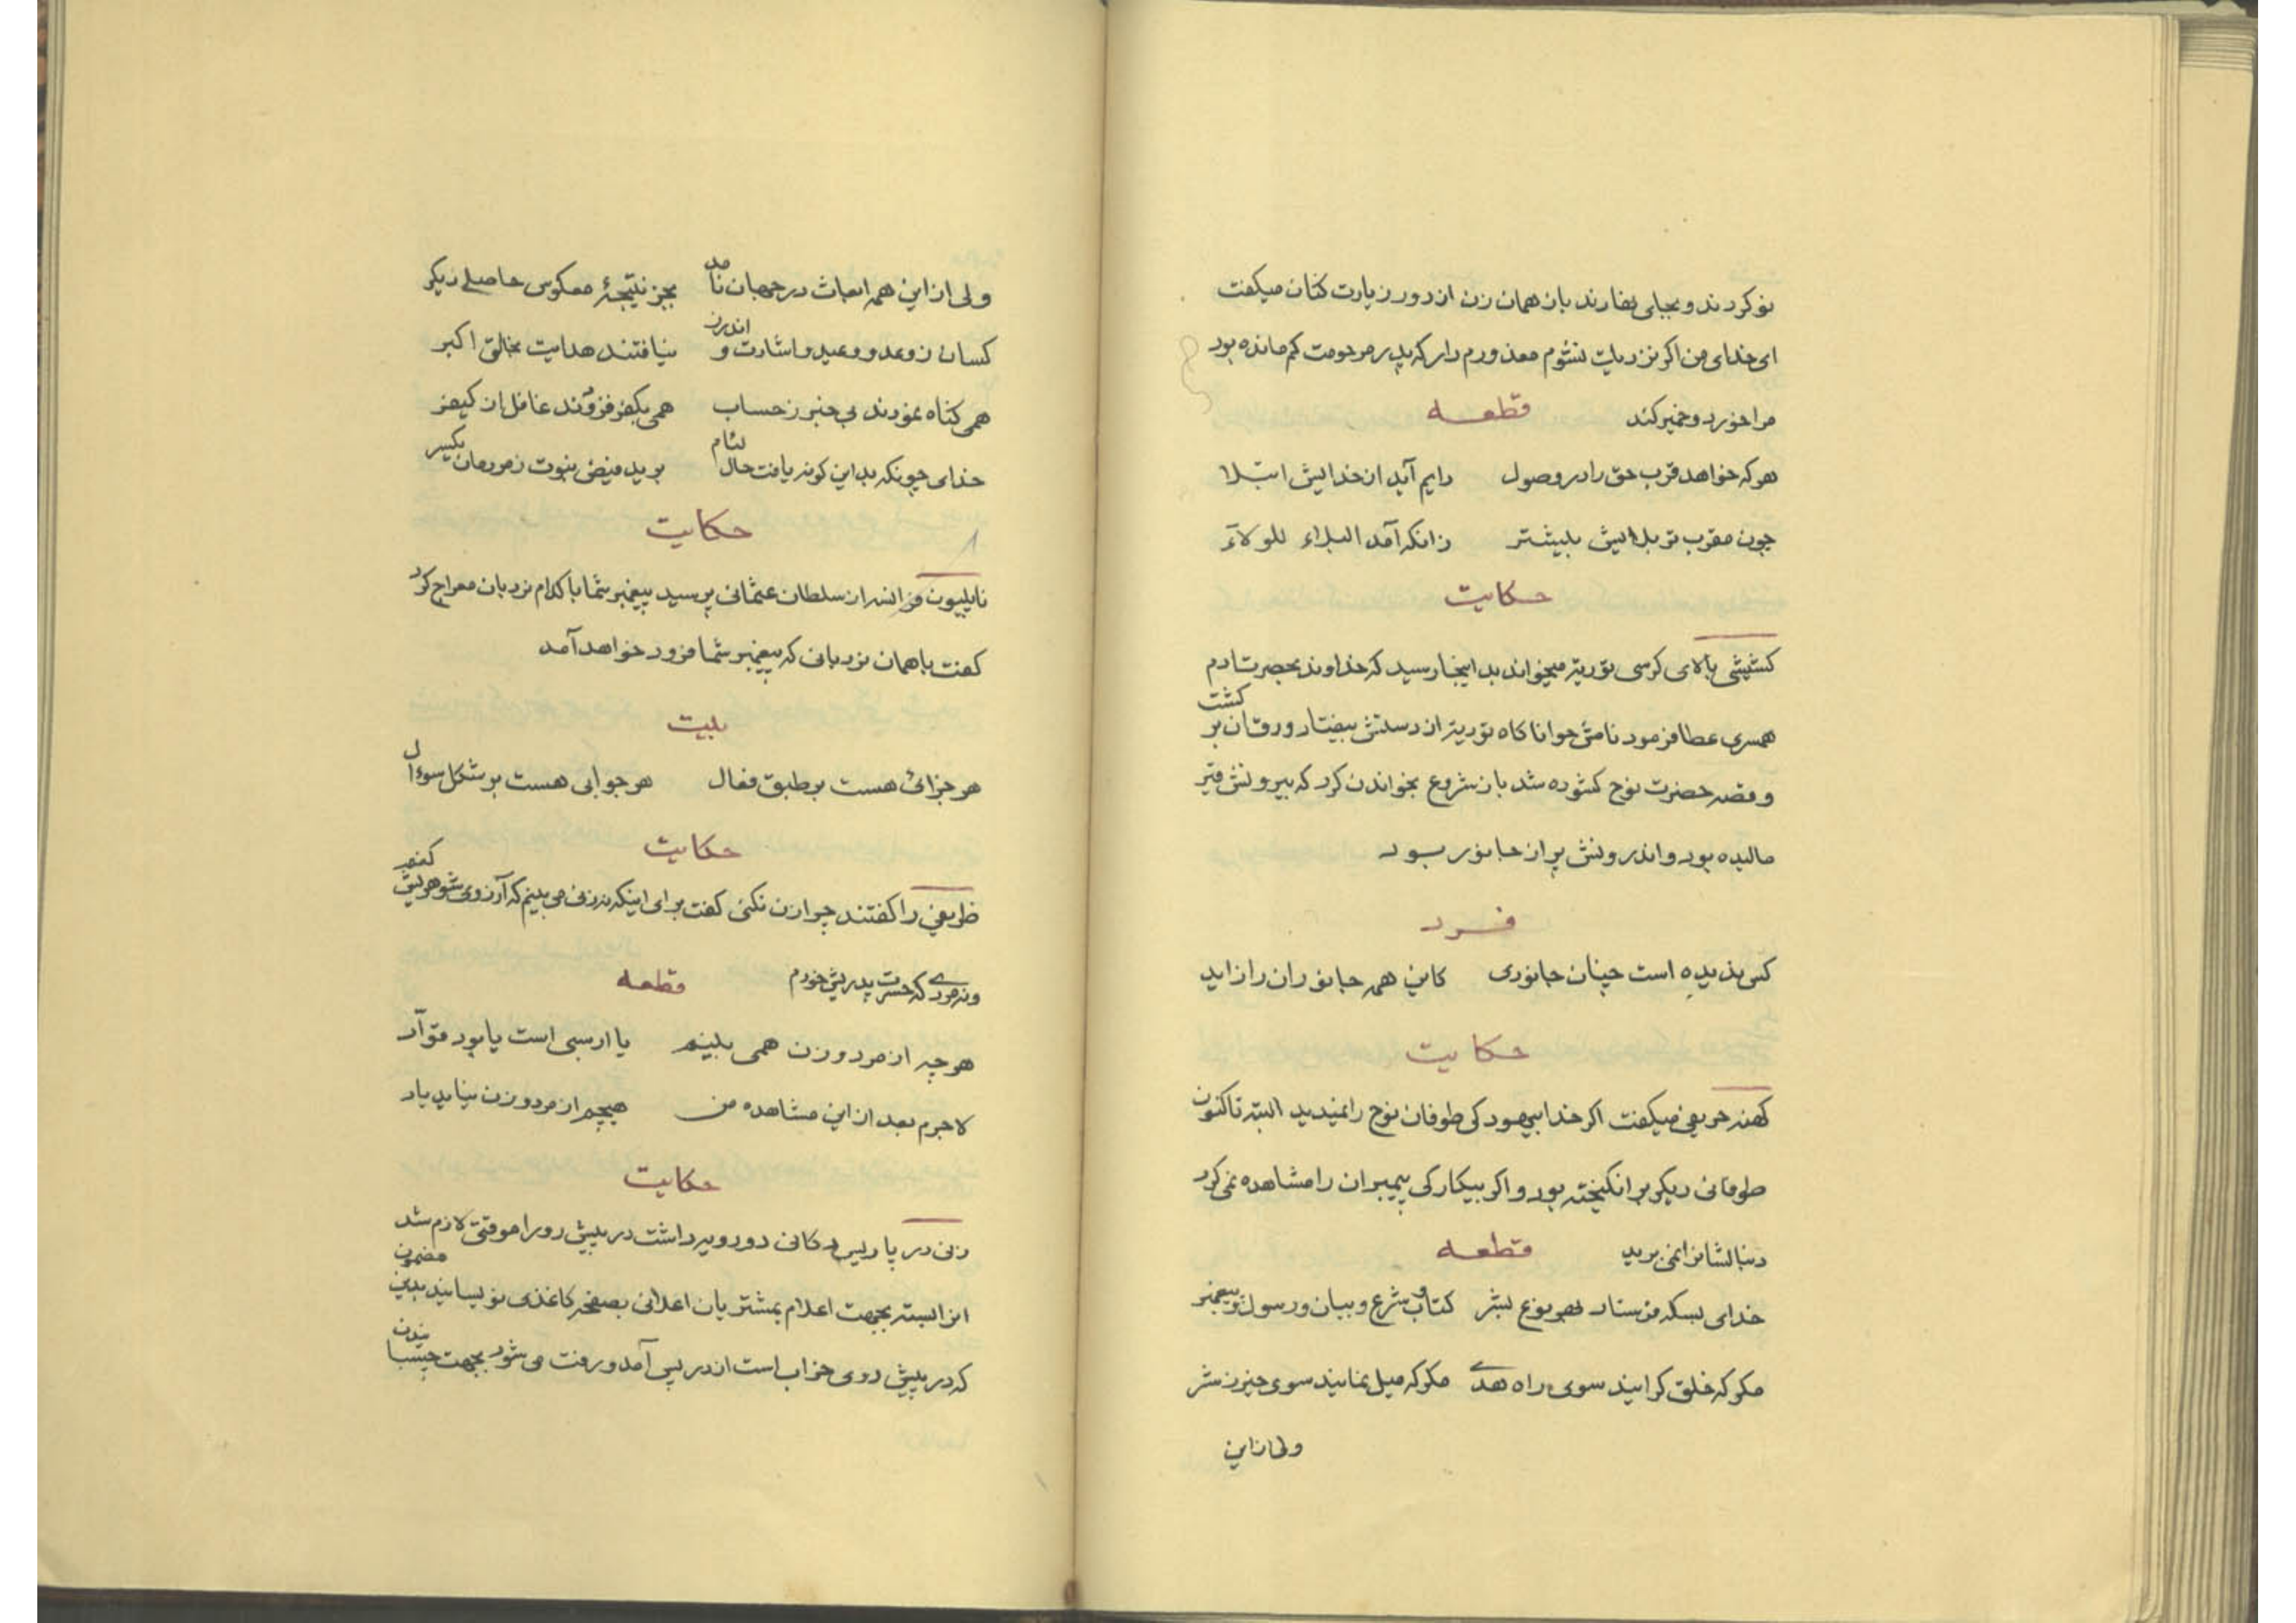 نو کردند و بجای نهادند بان همان زن از دور زیارت کنان میگفت
ای خدای من اگر نزدیکت نشوم معذورم دار که پدر مرحومت کم مانده بود
مرا خورد و خمیر کند
قطعه
هر که خواهد قرب حق را در وصول دایم آید از خدایش ابتلا
چون مقرب تر بلایش بیشتر زانکه آمد البلاء للولاء
حکایت
کشیشی بالای کرسی توریة میخواند بداینجا رسید که خداوند بحضرت آدم
همسری عطا فرمود نامش حوا ناگاه توریة از دستش بیفتاد ورقان بر گشت
و قصه حضرت نوح گشوده شد باز شروع بخواندن کرد که بیرونش قیر
مالیده بود و اندرونش پر از جانور بود
فرد
کس ندیده است چنان جانوری کاین همه جانوران را زاید
حکایت
کهنه حریفی میگفت اگر خدا بیهودگی طوفان نوح را نمیدید البته تاکنون
طوفانی دیگر برانگیخته بود و اگر بیکارگی پیمبران را مشاهده نمی کرد
دنبالشانرا نمی برید
قطعه
خدای بسکه فرستاد بهر نوع بشر کتاب و شرع و بیان و رسول و پیغمبر
مگر که خلق گرایند سوی راه هدی مگر که میل نمایند سوی خیر ز شر
ولی از این
ولی از این همه ابعاث در جهان نامد بجز نتیجهٔ معکوس حاصلی دیگر
کسان ز وعد و وعید و اشارت و اندرز نیافتند هدایت بخالق اکبر
همی گناه نمودند بی خبر ز حساب همی بکفر فزودند غافل از کیفر
خدای چونکه بداین گونه یافت حال لئام برید فیض نبوت ز مردمان یکسر
حکایت
ناپلیون فرانسه از سلطان عثمانی پرسید پیغمبر شما با کدام نردبان معراج کرد
گفت باهمان نردبانی که پیغمبر شما فرود خواهد آمد
بیت
هر جزائی هست بر طبق فعال هر جوابی هست بر شکل سوءال
حکایت
ظریفی را گفتند چرا زن نکنی گفت برای اینکه نه زنی می بینم که آرزوی شوهریش کنم
و نه مردی که حسرت پدریش خورم
قطعه
هر چه از مرد و زن همی بینم یا ارسبی است یا بود قوّاد
لاجرم بعد از این مشاهده من هیچم از مرد و زن نیاید یاد
حکایت
زنی در پاریس دکانی دورویه داشت در پیش رو را موقتی لازم شد
انرا بسته بجهت اعلام بمشتریان اعلانی بصفحه کاغذی نویسانید بدین مضمون
که در پیش روی خراب است از در پس آمد و رفت می شود بجهت چسباندن